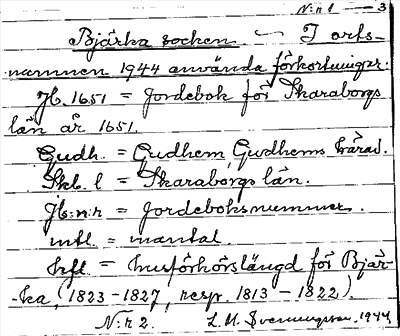 N:r 1 — 3
Bjärka socken — I orts-
namnen 1944 använda förkortningar.
Jb. 1651 = Jordebok för Skaraborgs
län år 1651.
Gudh. = Gudhem, Gudhems härad.
Skb. l = Skaraborgs län.
Jb:n:r = Jordeboksnummer.
mtl. = mantal.
hfl = husförhörslängd för Bjär-
-ka, (1823-1827, resp. 1813-1822).
N:r 2. L. M. Svenungsson, 1944